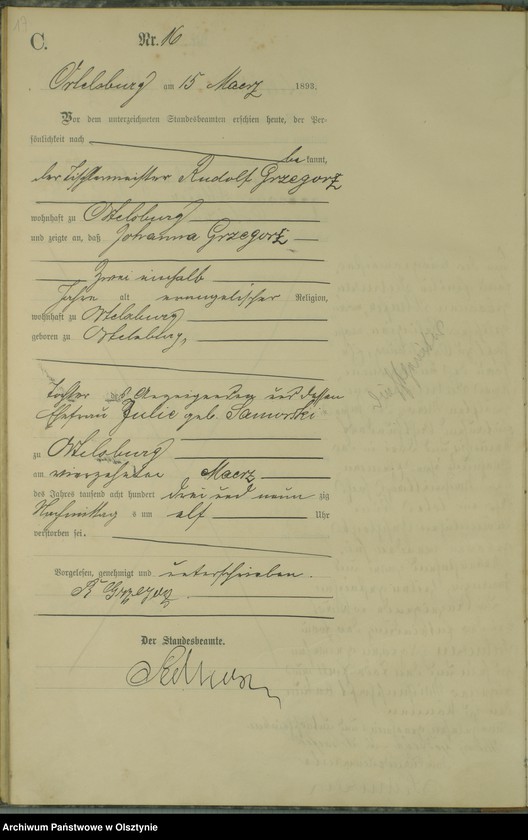 19
C.
Nr. 16
Ortelsburg am 15 Maerz 1893.
Vor dem unterzeichneten Standesbeamten erschien heute, der Per-
sönlichkeit nach
bekannt,
der Tischlermeister Rudolf Grzegorz
wohnhaft zu Ortelsburg
und zeigte an, daß Johanna Grzegorz
Zwei einhalb
Jahre alt evangelischer Religion,
wohnhaft zu Ortelsburg
geboren zu Ortelsburg,
Tochter des Anzeigenden und dessen
Ehefrau Julie geb. Samorski
zu Ortelsburg
am vierzehnten Maerz
des Jahres tausend acht hundert drei und neunzig
Nachmittags um elf Uhr
verstorben sei.
Vorgelesen, genehmigt und unterschrieben.
R Grzegorz
Der Standesbeamte.
Archiwum Państwowe w Olsztynie